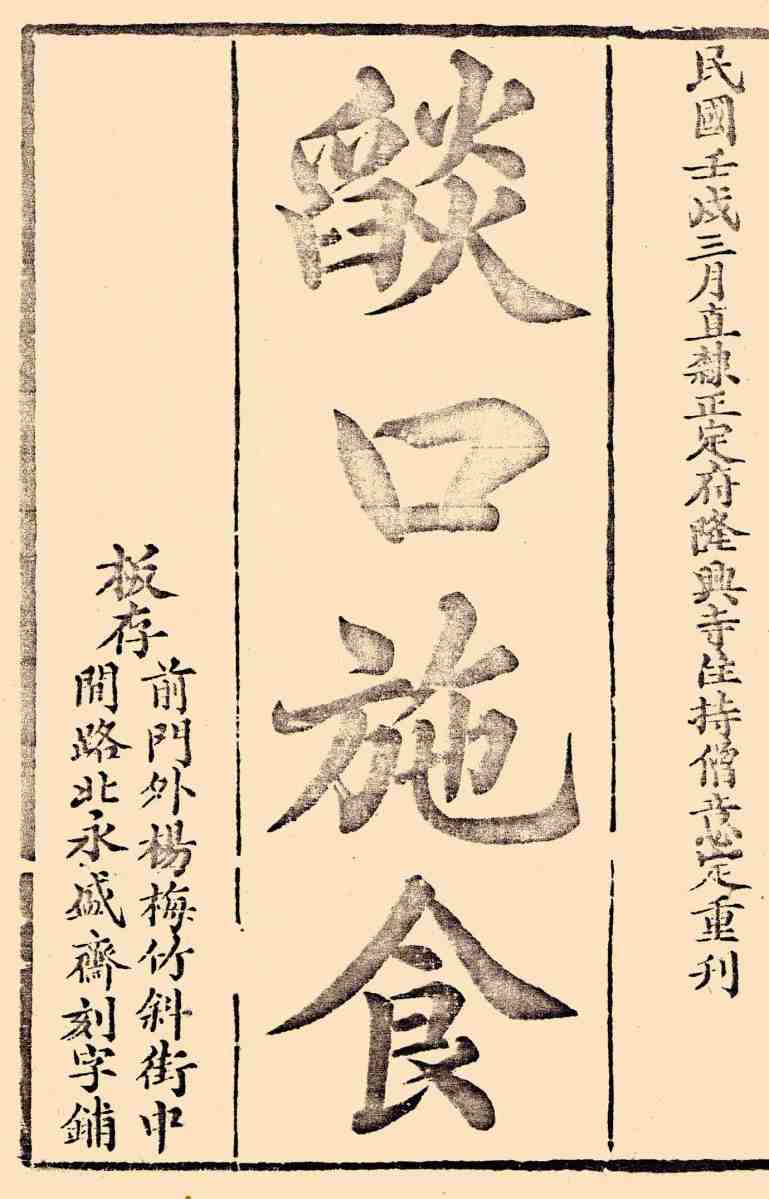 民國壬戌三月直隸正定府隆興寺住持僧意定重刋
燄口施食
板存
前門外楊梅竹斜街中
間路北永盛齋刻字鋪